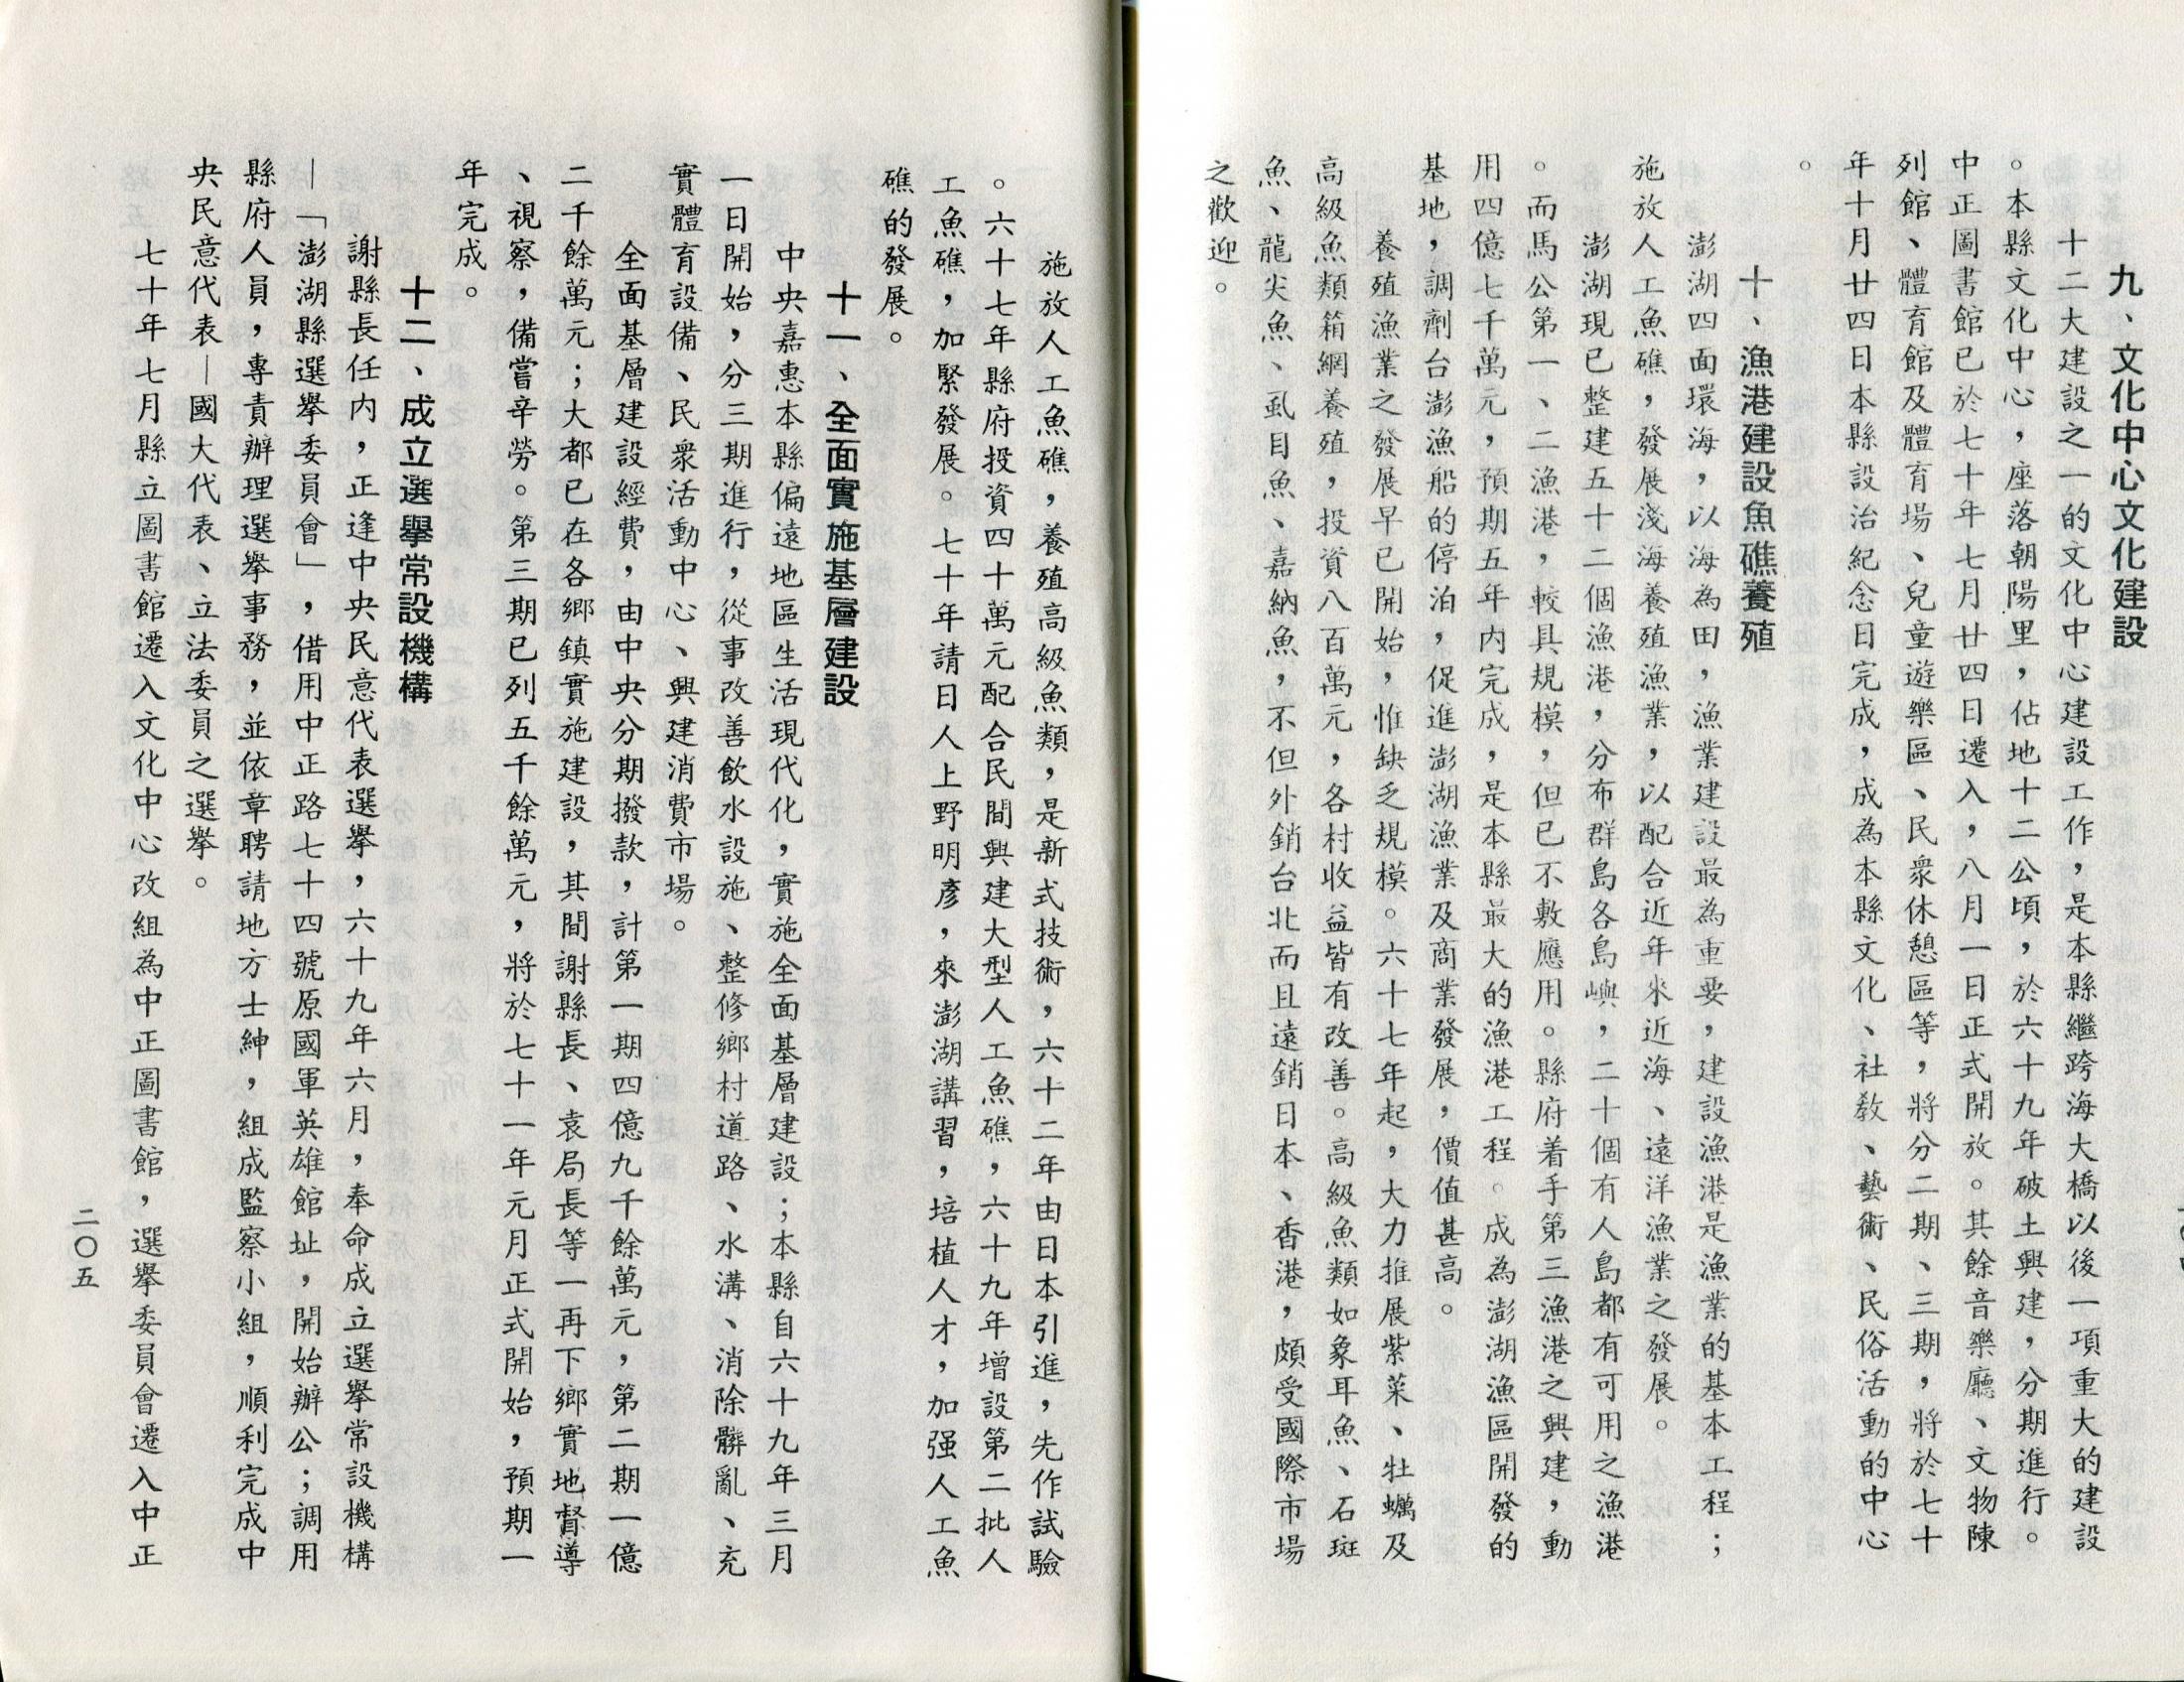 九、文化中心文化建設
十二大建設之一的文化中心建設工作，是本縣繼跨海大橋以後一項重大的建設
。本縣文化中心，座落朝陽里，佔地十二公頃，於六十九年破土興建，分期進行。
中正圖書館已於七十年七月廿四日遷入，八月一日正式開放。其餘音樂廳、文物陳
列館、體育館及體育場、兒童遊樂區、民衆休憩區等，將分二期、三期，將於七十
年十月廿四日本縣設治紀念日完成，成為本縣文化、社教、藝術、民俗活動的中心
。
十、漁港建設魚礁養殖
澎湖四面環海，以海為田，漁業建設最為重要，建設漁港是漁業的基本工程；
施放人工魚礁，發展淺海養殖漁業，以配合近年來近海、遠洋漁業之發展。
澎湖現已整建五十二個漁港，分布群島各島嶼，二十個有人島都有可用之漁港
。而馬公第一、二漁港，較具規模，但已不敷應用。縣府着手第三漁港之興建，動
用四億七千萬元，預期五年內完成，是本縣最大的漁港工程。成為澎湖漁區開發的
基地，調劑台澎漁船的停泊，促進澎湖漁業及商業發展，價值甚高。
養殖漁業之發展早已開始，惟缺乏規模。六十七年起，大力推展紫菜、牡蠣及
高級魚類箱網養殖，投資八百萬元，各村收益皆有改善。高級魚類如象耳魚、石斑
魚、龍尖魚、虱目魚、嘉納魚，不但外銷台北而且遠銷日本、香港，頗受國際市場
之歡迎。
施放人工魚礁，養殖高級魚類，是新式技術，六十二年由日本引進，先作試驗
。六十七年縣府投資四十萬元配合民間興建大型人工魚礁，六十九年增設第二批人
工魚礁，加緊發展。七十年請日人上野明彥，來澎湖講習，培植人才，加强人工魚
礁的發展。
十一、全面實施基層建設
中央嘉惠本縣偏遠地區生活現代化，實施全面基層建設；本縣自六十九年三月
一日開始，分三期進行，從事改善飲水設施、整修鄉村道路、水溝、消除髒亂、充
實體育設備、民衆活動中心、興建消費市場。
全面基層建設經費，由中央分期撥款，計第一期四億九千餘萬元，第二期一億
二千餘萬元；大都已在各鄉鎮實施建設，其間謝縣長、袁局長等一再下鄉實地督導
、視察，備嘗辛勞。第三期已列五千餘萬元，將於七十一年元月正式開始，預期一
年完成。
十二、成立選舉常設機構
謝縣長任内，正逢中央民意代表選舉，六十九年六月，奉命成立選舉常設機構
—「澎湖縣選舉委員會」，借用中正路七十四號原國軍英雄館址，開始辦公；調用
縣府人員，專責辦理選舉事務，並依章聘請地方士紳，組成監察小組，順利完成中
央民意代表—國大代表、立法委員之選舉。
七十年七月縣立圖書館遷入文化中心改組為中正圖書館，選舉委員會遷入中正
二〇五